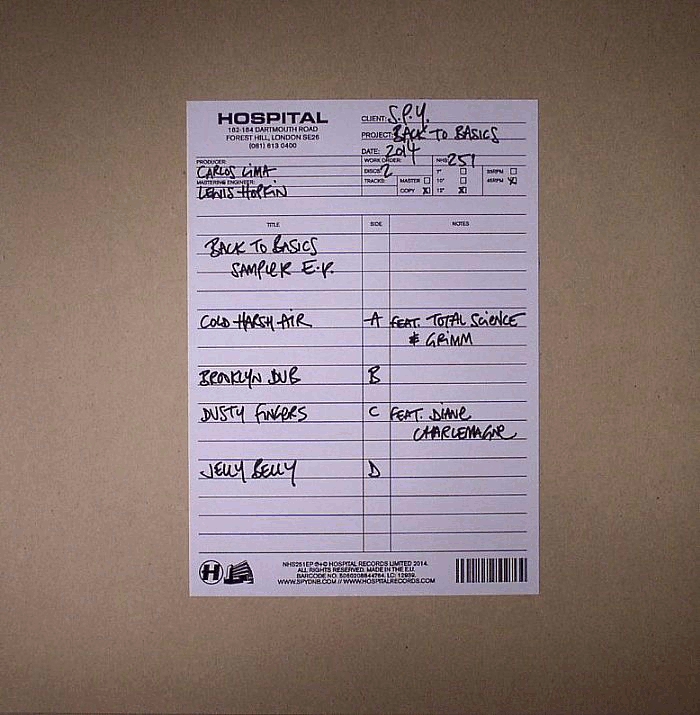 HOSPITAL
162-164 DARTMOUTH ROAD
FOREST HILL, LONDON SE26
(081) 613 0400
CLIENT: S.P.Y.
PROJECT: BACK TO BASICS
DATE: 2014
WORK ORDER:
NHS: 251
PRODUCER:
CARLOS LIMA
MASTERING ENGINEER:
LEWIS HOPKIN
DISCS: 2
TRACKS:
MASTER
COPY X
7"
10"
12" X
33RPM
45RPM X
TITLE SIDE NOTES
BACK TO BASICS
SAMPLER E.P.
COLD HARSH AIR A FEAT. TOTAL SCIENCE
& GRIMM
BROOKLYN DUB B
DUSTY FINGERS C FEAT. DIANE
CHARLEMAGNE
JELLY BELLY D
H
NHS251EP ℗+© HOSPITAL RECORDS LIMITED 2014.
ALL RIGHTS RESERVED. MADE IN THE E.U.
BARCODE NO. 5060208844764. LC: 12939.
WWW.SPYDNB.COM // WWW.HOSPITALRECORDS.COM